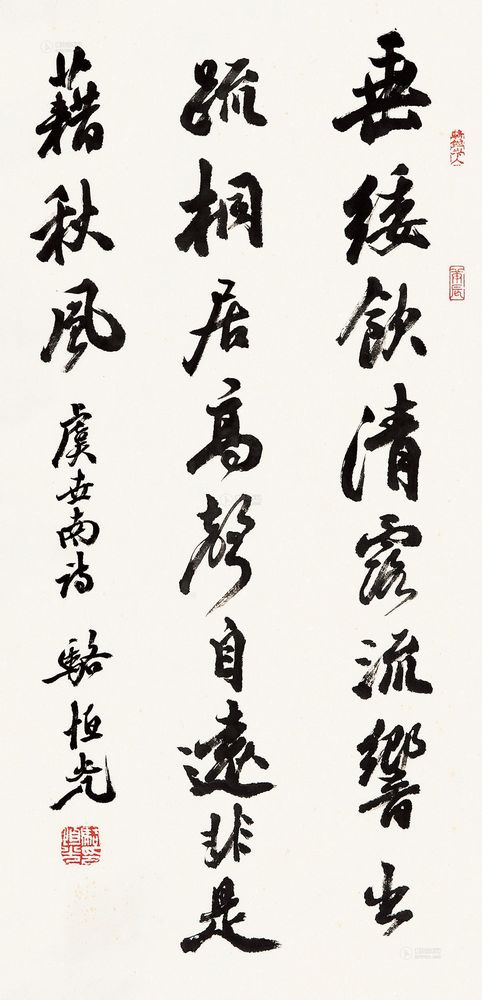 垂緌飲清露流響出
疏桐居高聲自遠非是
藉秋風
虞世南詩 駱恒光